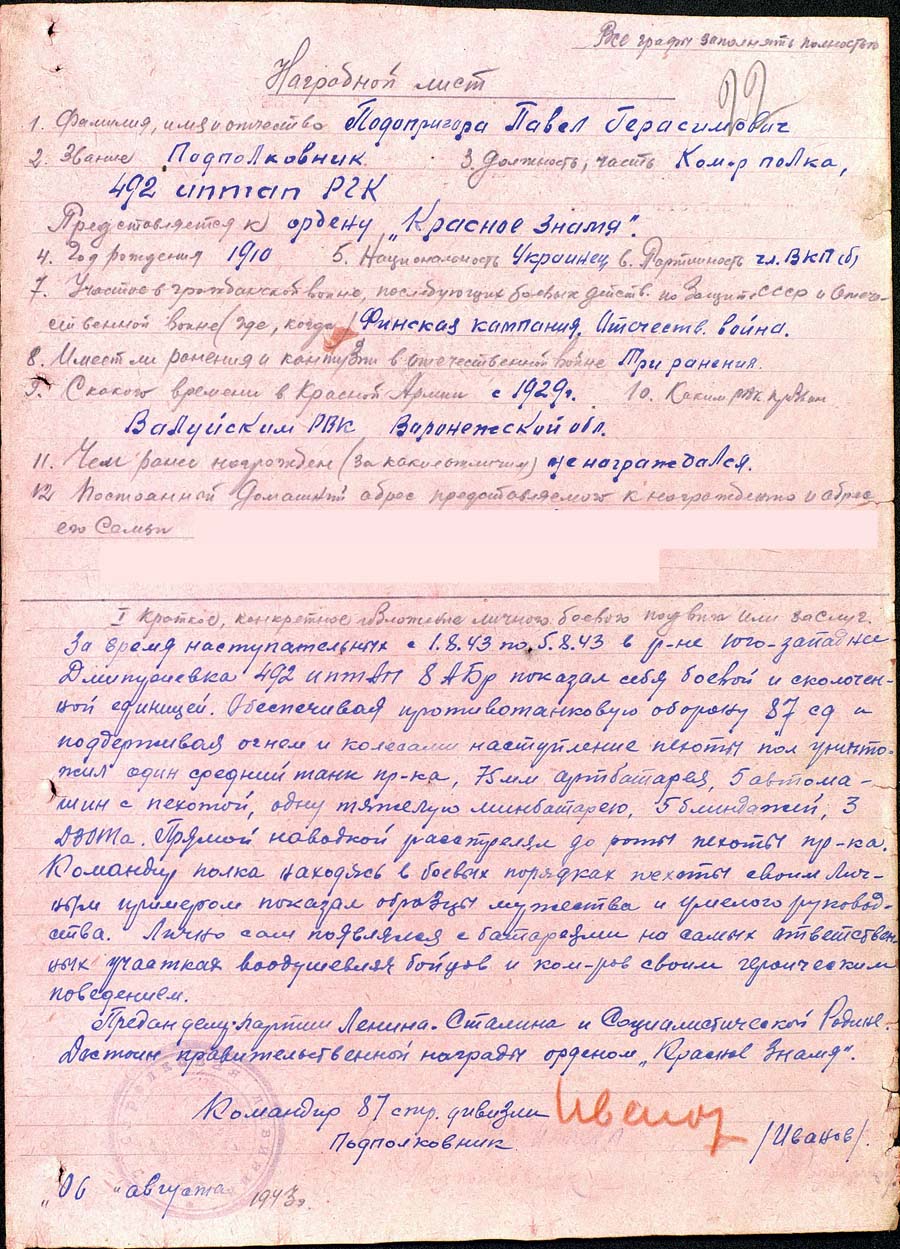 Все графы заполнять полностью
Наградной лист
1. Фамилия, имя и отчество Подопригора Павел Герасимович
2. Звание Подполковник 3. Должность, часть Ком-р полка,
492 иптап РГК
Представляется к ордену „Красное Знамя".
4. Год рождения 1910 5. Национальность Украинец 6. Партийность чл. ВКП(б)
7. Участие в гражданской войне, последующих боевых действ. по защите СССР и отече-
ственной войне (где, когда) Финская кампания. Отечеств. война.
8. Имеет ли ранения и контузии в отечественной войне Три ранения.
9. С какого времени в Красной Армии с 1929г. 10. Каким РВК призван
Валуйским РВК Варонежской обл.
11. Чем ранее награжден (за какие отличия) не награждался.
12 Постоянный домашний адрес представляемого к награждению и адрес
его семьи
I Краткое, конкретное изложение личного боевого подвига или заслуг.
За время наступательных с 1.8.43 по 5.8.43 в р-не юго-западнее
Дмитриевка 492 иптап 8 АБр показал себя боевой и сколочен-
ной единицей. Обеспечивая противотанковую оборону 87 сд и
поддерживая огнем и колесами наступление пехоты пол уничто-
жил один средний танк пр-ка, 75мм артбатарея, 5 автома-
шин с пехотой, одну тяжелую минбатарею, 5 блиндажей, 3
ДЗОТа. Прямой наводкой расстрелял до роты пехоты пр-ка.
Командир полка находясь в боевых порядках пехоты своим лич-
ным примером показал образцы мужества и умелого руковод-
ства. Лично сам появлялся с батареями на самых ответствен-
ных участках воодушевляя бойцов и ком-ров своим героическим
поведением.
Предан делу партии Ленина-Сталина и Социалистической Родине.
Достоин правительственной награды орденом „Красное Знамя".
Командир 87 стр. дивизии
Подполковник /Иванов/.
„06 " августа 1943г.